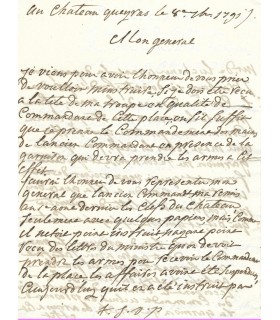 Au Chateau queyras le 8e 7bre 1791
Mon general
Je viens pour avoir l'honneur de vous prier
de vouloir m'instruire si je dois etre recu
a la tete de ma troupe en qualité de
Commandant de cette place, ou s'il suffit
que je prenne le Commandement des mains
de l'ancien Commandant en presence de la
garnison qui devra prendre les armes a cet
Effet.
J'aurai l'honneur de vous representer mon
general que l'ancien Commandant a remis
les Clefs du Chateau
seulement avec quelques papiers, mais comme
il n'etoit pas instruit
recu des lettres du ministre qu'on devoit
prendre les armes pour recevoir le Commandant
de la place, les affaires
Aujourd'huy qu'il en a été instruit par